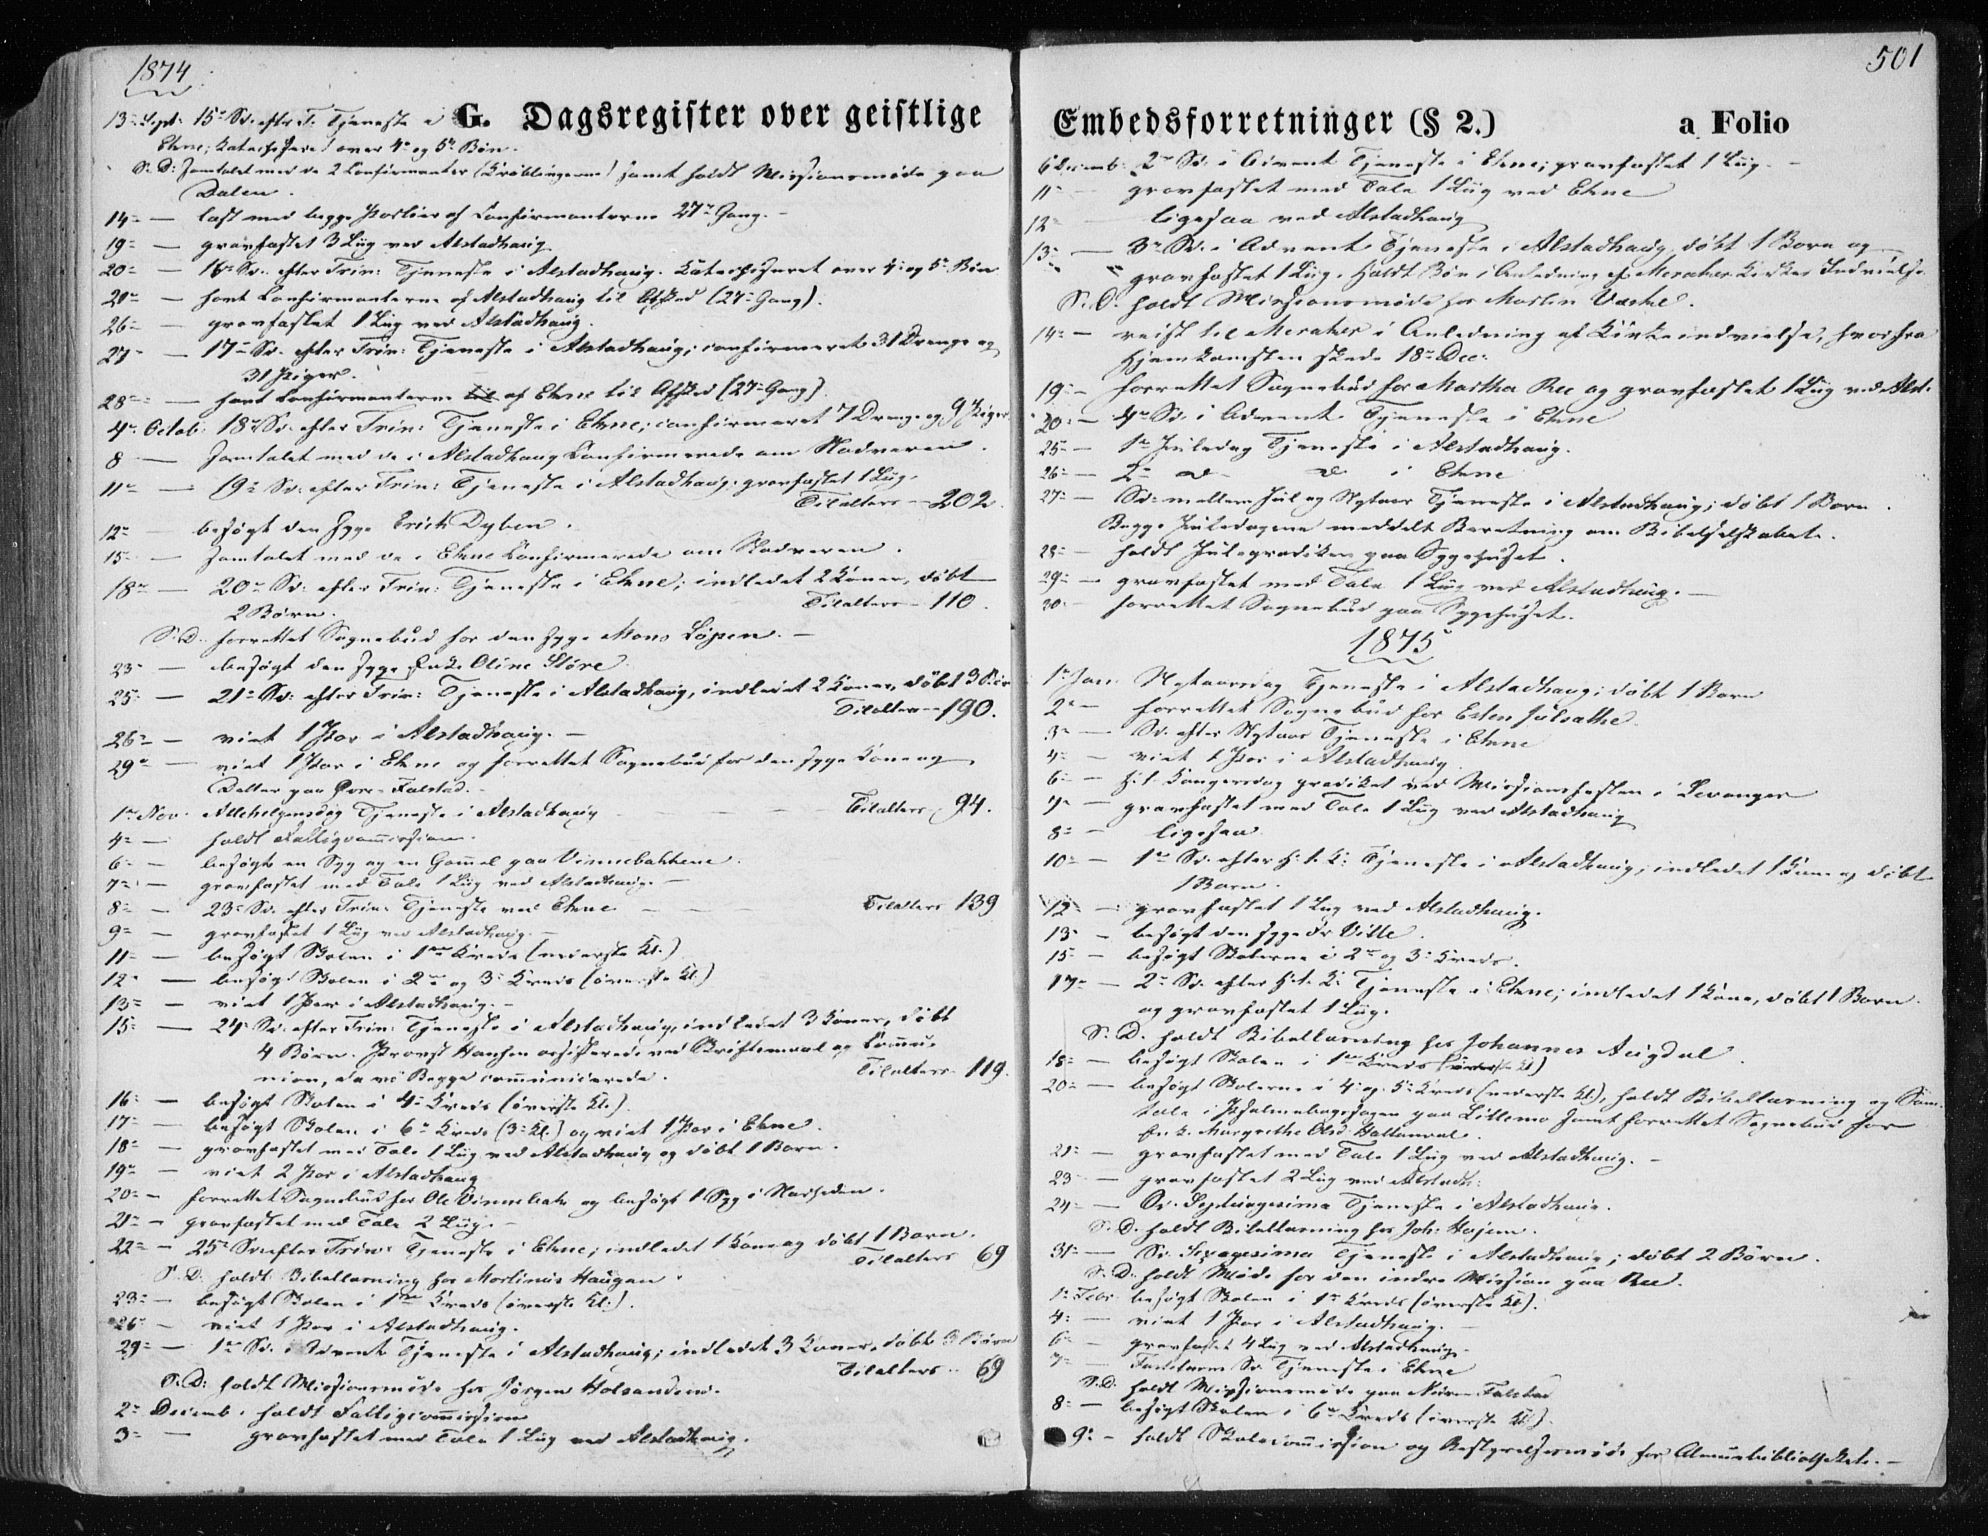 1874
G. Dagsregister over geistlige
13de Sept: 15de Sd. efter Tr. Tjeneste i
Ekne; katechiseret over 4de og 5te Bøn.
S: D: samtalet med de 2 Confirmanter samt holdt Missionsmøde paa
Dalen.
14de — læst med begge Partier af Confirmanterne 27de Gang. -
19de — gravfæstet 3 Liig ved Alstadhaug
20de — 16de Sd. efter Trin: Tjeneste i Alstadhaug. Katechiseret over 4de og 5te Bøn
21de — havt Confirmanterne af Alstadhaug til Afsked (27de Gang).
26de — gravfæstet 1 Liig ved Alstadhaug.
27de — 17de Sd. efter Trin: Tjeneste i Alstadhaug; confirmeret 31 Drenge og
31 Piger.
28de — havt Confirmanterne af Ekne til Afsked (27de Gang).
4de Octob: 18de Sd. efter Trin: Tjeneste i Ekne; confirmeret 7 Drenge og 9 Piger
8 — Samtalet med de i Alstadhaug Confirmerede om Nadveren.
11te — 19de Sd. efter Trin: Tjeneste i Alstadhaug. gravfæstet 1 Liig.
Tilalters — 202.
12te — besøgt den syge Erich Dyben.
15de — Samtalet med de i Ekne Confirmerede om Nadveren.
18de — 20de Sd: efter Trin: Tjeneste i Ekne; indledet 2 Koner, døbt
2 Børn. Tilalters — 110.
S: D. forrettet Sognebud for den syge Mons Løpen. —
23de — besøgt den syge Enke Oline Støre
25de — 21de Sd: efter Trin: Tjeneste i Alstadhaug, indledet 2 Koner, døbt 3 Børn
Tilalters — 190.
26de — viet 1 Par i Alstadhaug. —
29de — viet 1 Par i Ekne og forrettet Sognebud for den syge Kone og
Datter paa Øvre-Falstad. -
1ste Nov. Allehelgensdag Tjeneste i Alstadhaug — — — Tilalters 94.
4de — holdt Fattigcommission.
6te — besøgt en Syg og en Gammel paa Vinnebakkene.
7de — gravfæstet med Tale 1 Liig ved Alstadhaug. —
8de — 23de Sd. efter Trin: Tjeneste ved Ekne — — — Tilalters 139
9de — gravfæstet 1 Liig ved Alstadhaug. —
11te — besøgt Skolen i 1ste Kreds (nederste Kl.)
12te — besøgt Skolen i 2den og 3die Kreds (øverste Kl.)
13de — viet 1 Par i Alstadhaug. —
15de — 24de Sd. efter Trin: Tjeneste i Alstadhaug, indledet 3 Koner, døbt
4 Børn. Provst Hansen assisterede ved Skriftemaal og Commu-
nion, da vi Begge communicerede. Tilalters 119.
16de — besøgt Skolen i 4de Kreds (øverste Kl.)
17de — besøgt Skolen i 6te Kreds (3die Kl.) og viet 1 Par i Ekne.
18de — gravfæstet med Tale 1 Liig ved Alstadhaug og døbt 1 Barn.
19de — viet 2 Par i Alstadhaug
20de — forrettet Sognebud for Ole Vinnebak og besøgt 1 Syg i
21de — gravfæstet med Tale 2 Liig. —
22de — 25de Sd. efter Trin: Tjeneste i Ekne; indledet 1 Kone og døbt 1 Barn.
Tilalters 69
S. D. holdt Bibellæsning hos Martinus Haugan.
23de — besøgt Skolen i 1ste Kreds (øverste Kl:).
26de — viet 1 Par i Alstadhaug.
29de — 1ste Sd. i Advent Tjeneste i Alstadhaug; indledet 3 Koner, døbt 3 Børn
Tilalters — 69
S. D. holdt Missionsmøde hos Jørgen Holsanden.
2den Decemb. holdt Fattigcommission
3die — gravfæstet med Tale 1 Liig ved Alstadhaug.
501
Embedsforretninger (§ 2.) a Folio
6 Decemb: 2den Sd. i Advent Tjeneste i Ekne; gravfæstet 1 Liig. —
11 — gravfæstet med Tale 1 Liig ved Ekne
12te ligesaa ved Alstadhaug
13de — 3die Sd. i Advent Tjeneste i Alstadhaug, døbt 1 Barn og
gravfæstet 1 Liig. Holdt Bøn i Anledning af Meraker Kirkes Indvielse
S. D. holdt Missionsmøde hos Martin Væske.
14de — reist til Meraker i Anledning af Kirkeindvielse, hvorfra
Hjemkomsten skede 18de Dec:
19de — forrettet Sognebud for Martha Ree og gravfæstet 1 Liig ved Alst.
20de — 4de Sd. i Advent Tjeneste i Ekne
25de — 1ste Juledag Tjeneste i Alstadhaug.
26de — 2den do do i Ekne
27de — Sd: mellem Jul og Nytaar Tjeneste i Alstadhaug; døbt 1 Barn.
Begge Juledagene meddelt Beretning om Bibelselskabet.
28de — holdt Juleprædiken paa Sygehuset.
29de — gravfæstet med Tale 1 Liig ved Alstadhaug. —
30. — forrettet Sognebud paa Sygehuset.
1875
1ste Jan. Nytaarsdag Tjeneste i Alstadhaug; døbt 1 Barn
2den — forrettet Sognebud for Esten Julsathe
3die — Sd. efter Nytaar Tjeneste i Ekne
4de — viet 1 Par i Alstadhaug
6te — H. t. Kongersdag prædiket ved Missionsfesten i Levanger
7de — gravfæstet med Tale 1 Liig ved Alstadhaug
8de — ligesaa
10de — 1ste Sd. efter H. t. K: Tjeneste i Alstadhaug; indledet 1 Kone og døbt
1 Barn.
12te — gravfæstet 1 Liig ved Alstadhaug.
13de — besøgt den syge Fr Ville.
15de — besøgt Skolerne i 2den og 3die Kreds.
17de — 2den Sd. efter H. t. K. Tjeneste i Ekne; indledet 1 Kone, døbt 1 Barn.
og gravfæstet 1 Liig.
S. D. holdt Bibellæsning hos Johannes Augdal
18de — besøgt Skolen i 1ste Kreds (øverste Kl)
20de — besøgt Skolerne i 4de og 5te Kreds (nederste Kl), holdt Bibellæsning og Sam-
tale i Psalmebogssagen paa Lillemo samt forrettet Sognebud for
Enk. Margrethe Olsd Hallanval.
21de — gravfæstet med Tale 1 Liig ved Alstadhaug. —
23 — gravfæstet 2 Liig ved Alstadh:
24de — Sd. Septuagesima Tjeneste i Alstadhaug.
S. D. holdt Bibellæsning hos Joh: Hojem.
31te — Sd. Sexagesima Tjeneste i Alstadhaug; døbt 2 Børn.
S. D. holdt Møde for den indre Mission paa Ree.
1ste Febr. besøgt Skolen i 1ste Kreds (øverste Kl).
4de — viet 1 Par i Alstadhaug. —
6te — gravfæstet 4 Liig ved Alstadhaug.
7de — Fastelavns Sd. Tjeneste i Ekne
S. D. holdt Missionsmøde paa Nedre Falstad
8de — besøgt Skolen i 6te Kreds (øverste Kl).
9de — holdt Skolecommission og Bestyrelsesmøde for Almuebibliotheket. —